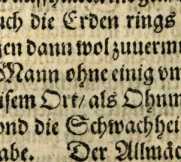 uch die Erden rings
gen dann wol zuuerm
Mann ohne einig vn
isem Ort/ als Ohnm
ond die Schwachhei
abe. Der Allmäc